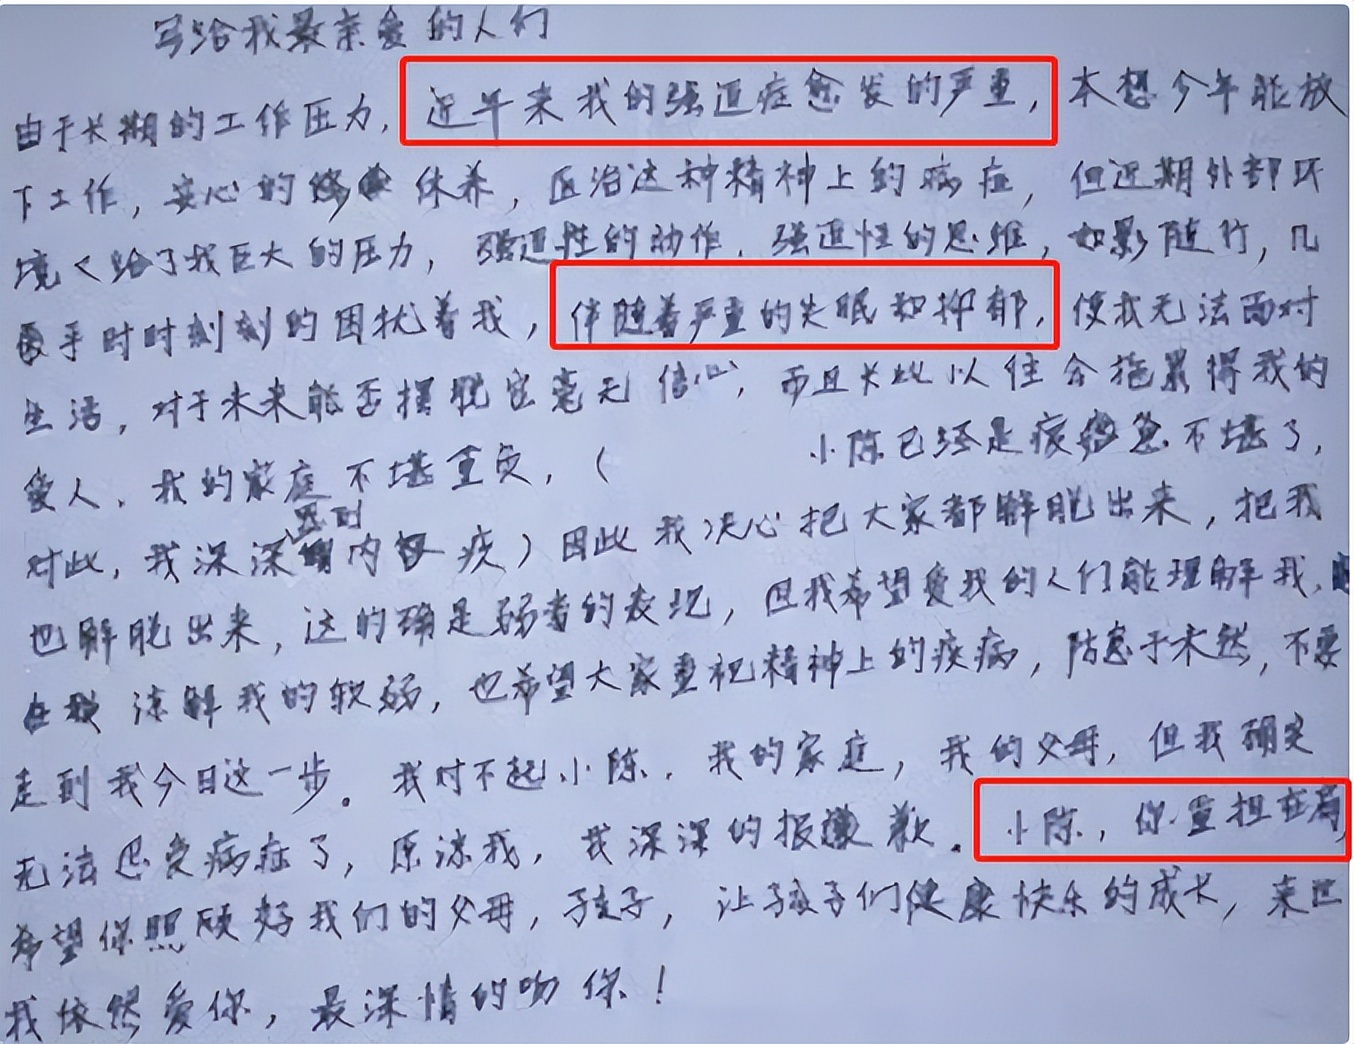 写给我最亲爱的人们
由于长期的工作压力，近年来我的强迫症愈发的严重，本想今年能放
下工作，安心的休养，医治这种精神上的病症，但近期外部环
境给了我巨大的压力，强迫性的动作，强迫性的思维，如影随行，几
乎时时刻刻的困扰着我，伴随着严重的失眠和抑郁，使我无法面对
生活，对于未来能否摆脱它毫无信心，而且长此以往会拖累得我的
爱人，我的家庭不堪重负，（小陈已经是疲惫不堪了，
对此，我深深内疚）因此我决心把大家都解脱出来，把我
也解脱出来，这的确是弱者的表现，但我希望爱我的人们能理解我，
谅解我的软弱，也希望大家重视精神上的疾病，防患于未然，不要
走到我今日这一步。我对不起小陈，我的家庭，我的父母，但我确实
无法忍受病症了，原谅我，我深深的报歉。小陈，你重担在肩，
希望你照顾好我们的父母，孩子，让孩子们健康快乐的成长，来世
我依然爱你，最深情的吻你！